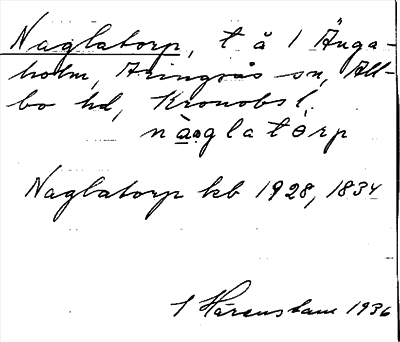 Naglatorp, t å 1 Änga-
holm, Aringsås sn, All-
bo hd, Kronobs l.
nàglatórp
Naglatorp kb 1928, 1834
1 Hårenstam 1936